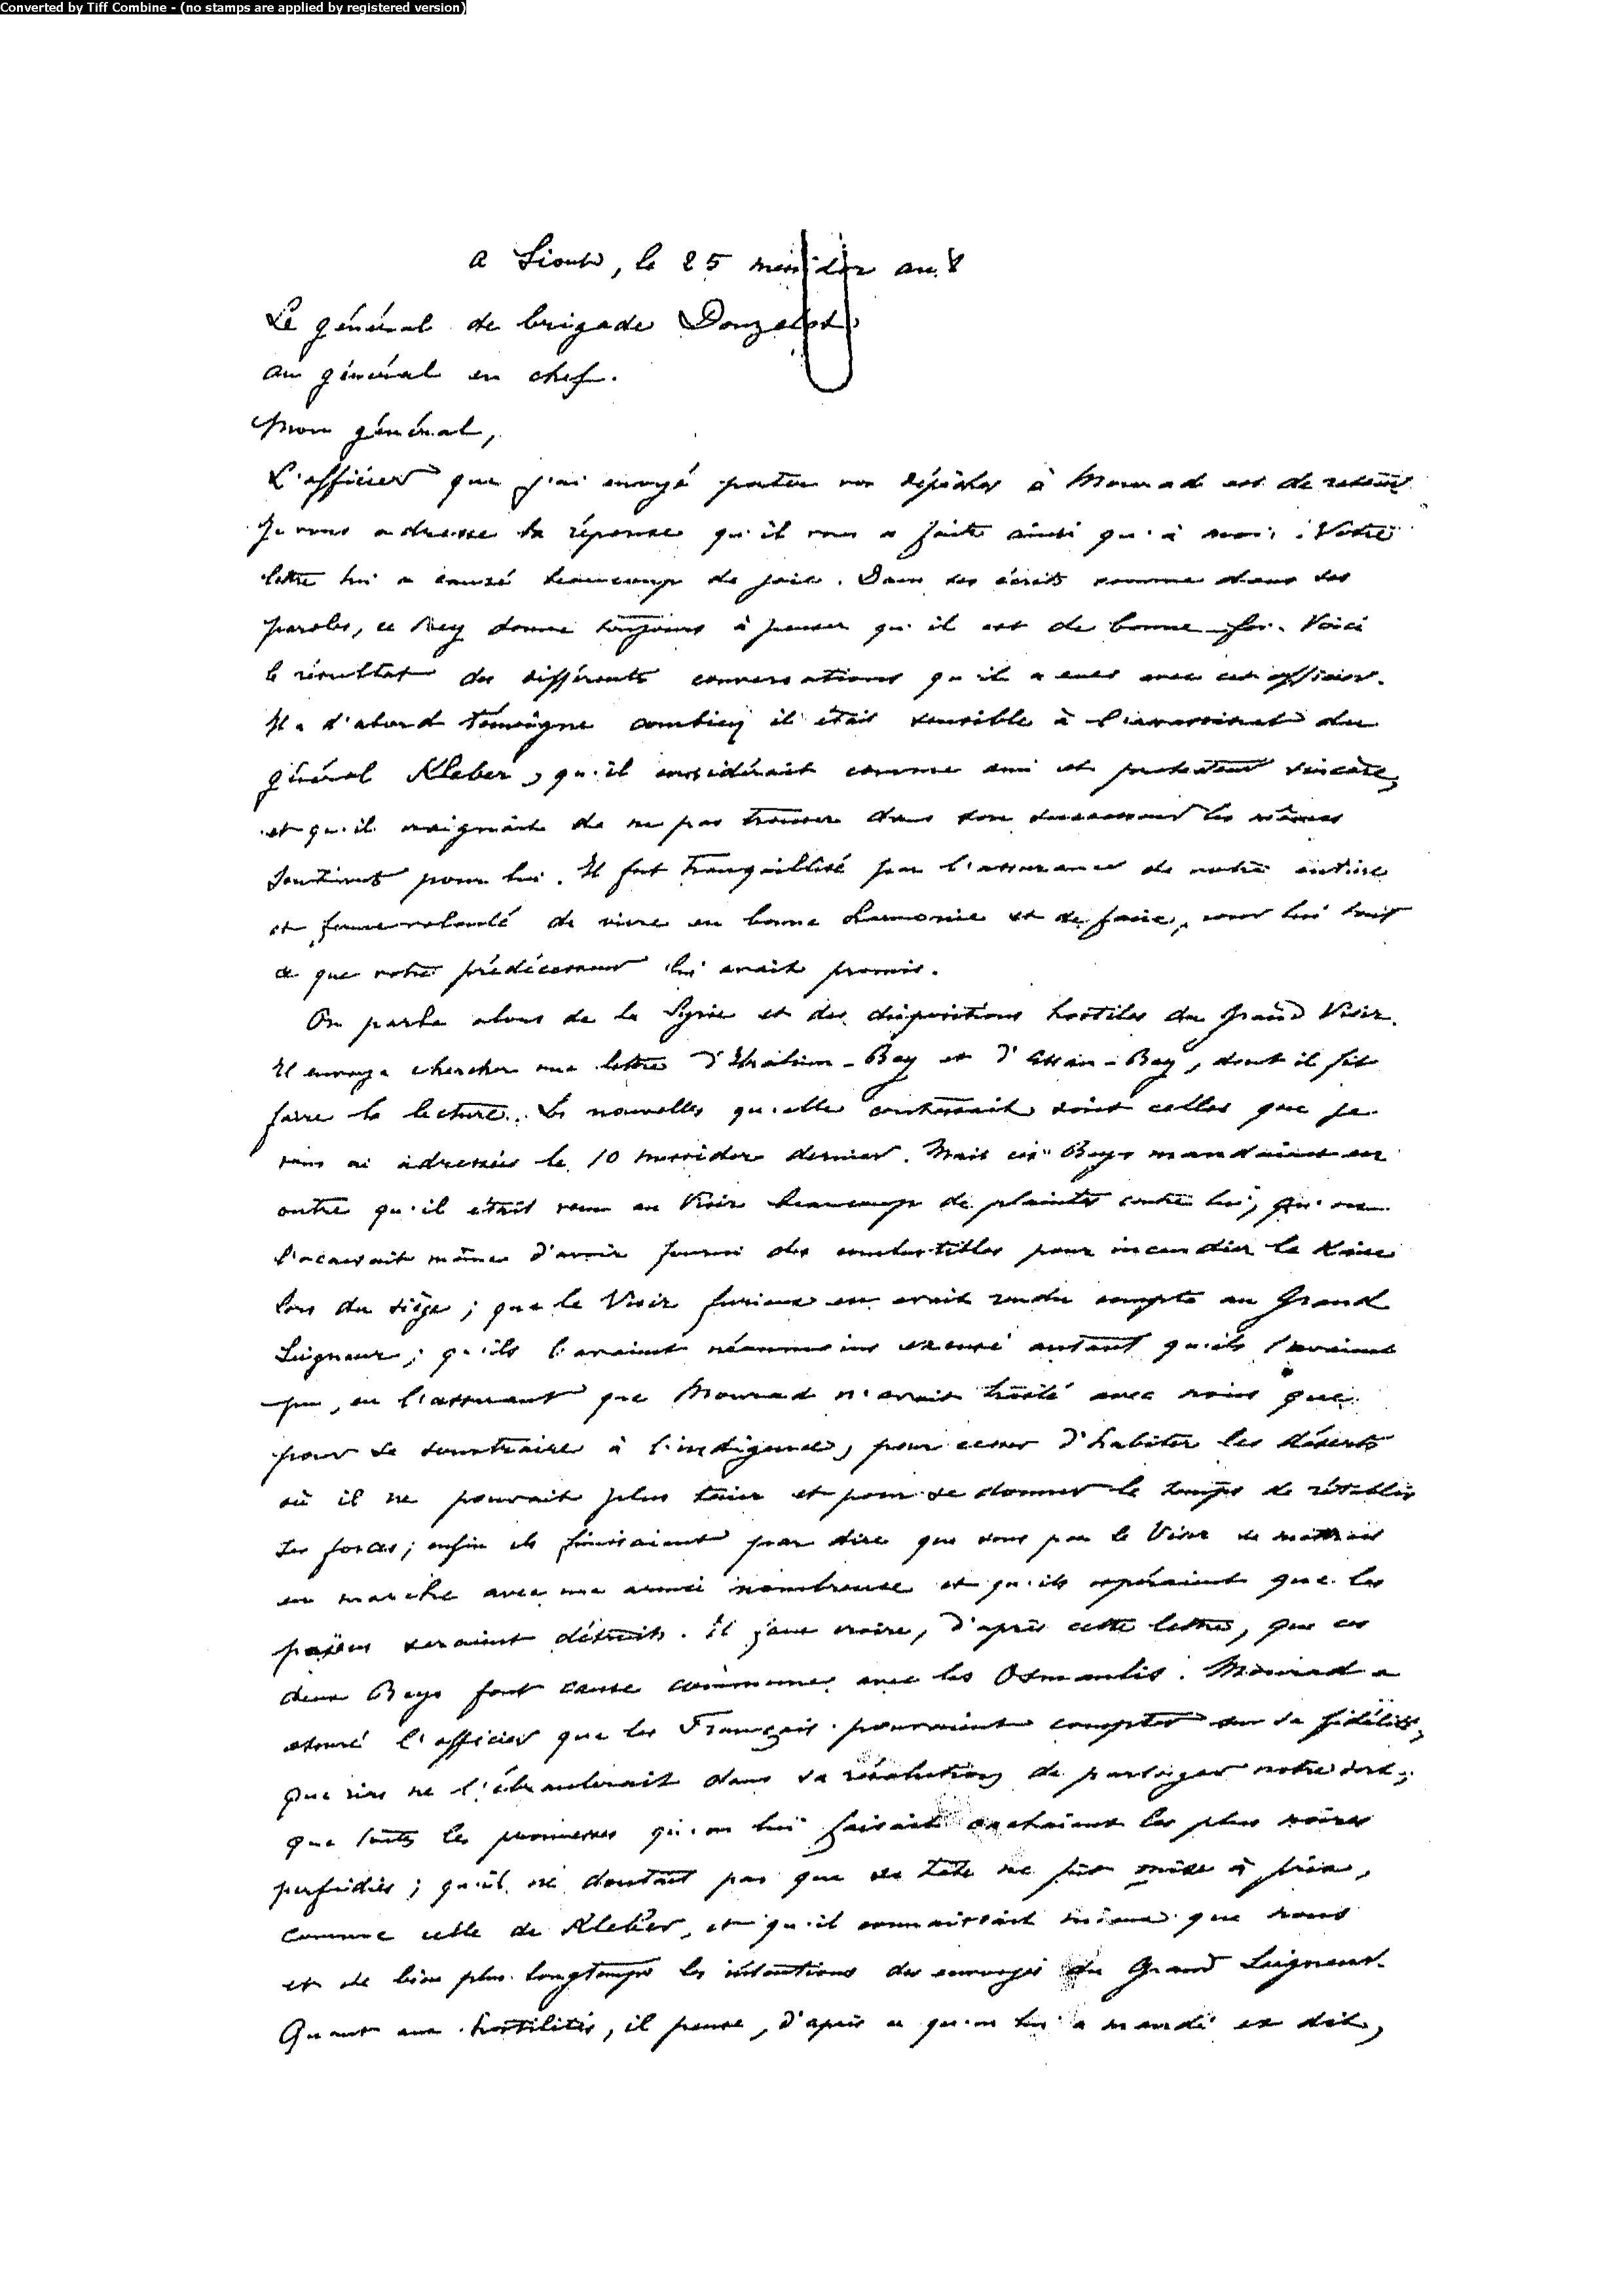 Converted by Tiff Combine - (no stamps are applied by registered version)
a Siout, le 25 messidor an 8
Le général de brigade Donzelot
au général en chef.
Mon général,
L'officier que j'ai envoyé porter vos dépêches à Mourad est de retour
Je vous adresse la réponse qu'il vous a faite ainsi qu'à moi. Votre
lettre lui a causé beaucoup de joie. Dans ses écrits comme dans ses
paroles, ce Bey donne toujours à penser qu'il est de bonne foi. Voici
le résultat des différents conversations qu'il a eues avec cet officier.
Il a d'abord témoigné combien il était sensible à l'assassinat du
général Kleber, qu'il considérait comme ami et protecteur sincère,
et qu'il craignait de ne pas trouver dans son successeur les mêmes
sentiments pour lui. Il fut tranquillisé par l'assurance de votre entière
et ferme volonté de vivre en bonne harmonie et de faire, pour lui tout
ce que votre prédécesseur lui avait promis.
On parla alors de la Syrie et des dispositions hostiles du Grand Visir.
Il envoya chercher une lettre d'Ibrahim-Bey et d'Assan-Bey, dont il fit
faire la lecture. Les nouvelles qu'elle contenait sont celles que je
vous ai adressées le 10 messidor dernier. Mais ces Beys mandaient en
outre qu'il était venu au Visir beaucoup de plaintes contre lui, qu'on
l'accusait même d'avoir fourni des combustibles pour incendier le Kaire
lors du siège; que le Visir furieux en avait rendu compte au Grand
Seigneur; qu'ils l'avaient néanmoins excusé autant qu'ils l'avaient
pu, en l'assurant que Mourad n'avait traité avec nous que
pour se soustraire à l'indigence, pour cesser d'habiter les déserts
où il ne pouvait plus tenir et pour se donner le temps de rétablir
ses forces; enfin ils finissaient par dire que sous peu le Visir se mettrait
en marche avec une armée nombreuse et qu'ils espéraient que les
payens seraient détruits. Il faut croire, d'après cette lettre, que ces
deux Beys font cause commune avec les Osmanlis. Mourad a
assuré l'officier que les Français pouvaient compter sur sa fidélité,
que rien ne l'ébranlerait dans sa résolution de partager notre sort;
que toutes les promesses qu'on lui faisait cachaient les plus noires
perfidies; qu'il ne doutait pas que sa tête ne fût mise à prix,
comme celle de Kleber, et qu'il connaissait mieux que nous
et de bien plus longtemps les intentions des envoyés du Grand Seigneur.
Quant aux hostilités, il pense, d'après ce qu'on lui a mandé et dit,